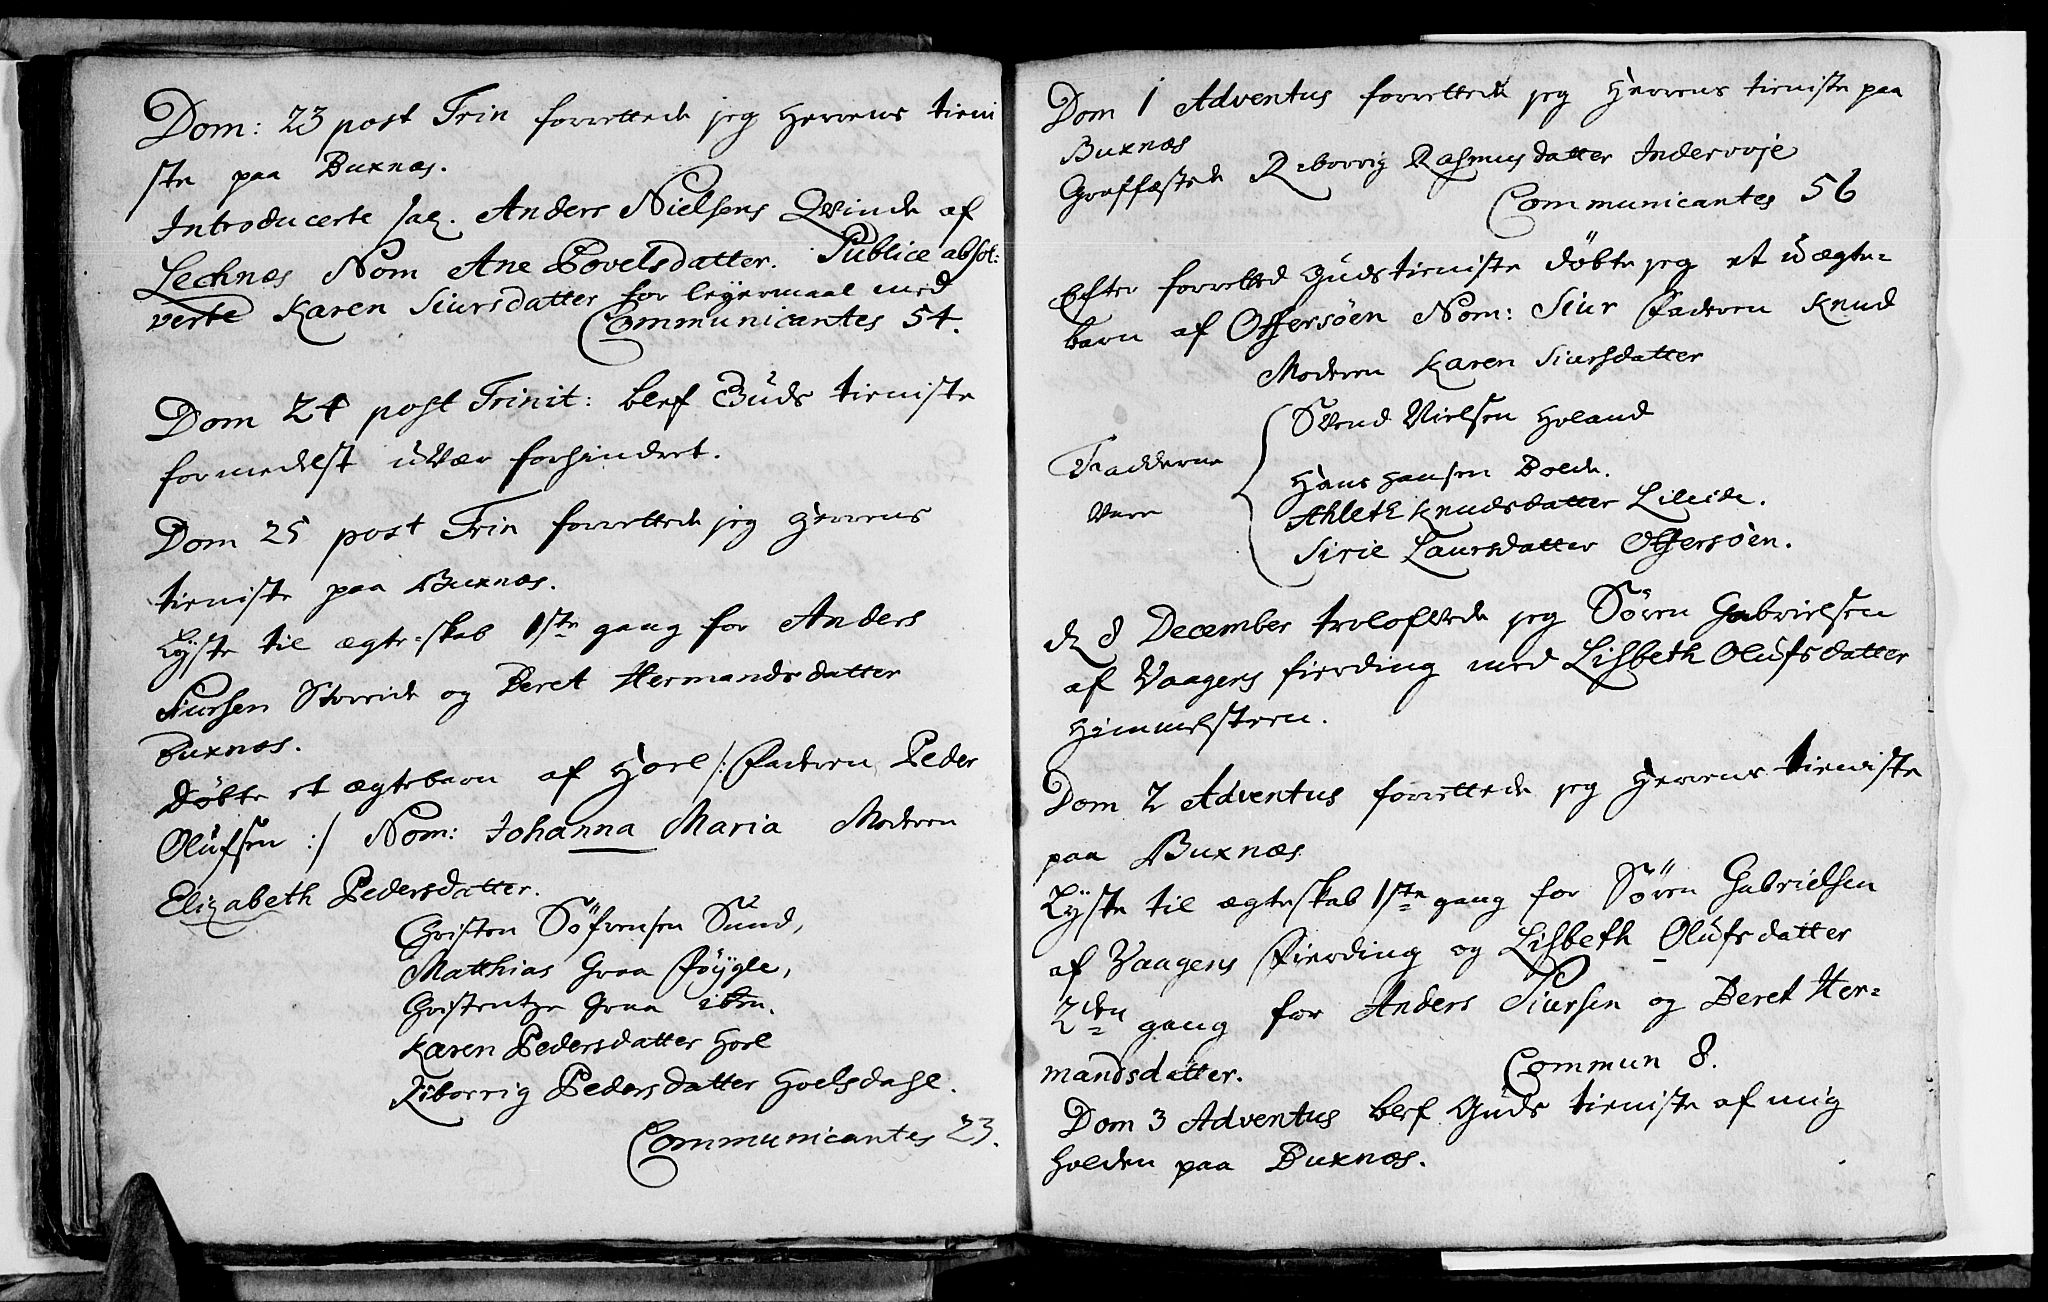 Dom: 23 post Trin forrettede jeg Herrens tieni
ste paa Buxnæs.
Introducerte sal. Anders Nielsens Qvinde af
Lechnæs Nom Ane Povelsdatter. Publice absol:
verte Karen Siursdatter for leyermaal med
Communicantes 54.
Dom 24 post Trinit: blef Guds tieniste
formedelst uvær forhindret.
Dom 25 post Trin forrettede jeg Herrens
tieniste paa Buxnæs.
Lyste til ægte-skab 1ste gang for Anders
Siursen Storeide og Beret Hermandsdatter
Buxnæs.
Døbte et ægtebarn af Horl /: Faderen Peder
Olufsen :/ Nom: Johanna Maria Moderen
Elizabeth Pedersdatter.
Christen Söfrensen Sund,
Matthias Graa Föygle,
Christentze Graa ibm.
Karen Pedersdatter Horl
Riborrig Pedersdatter Hoelsdahl.
Communicantes 23.
Dom 1 Adventus forrettede jeg Herrens tieniste paa
Buxnæs
Graffæstede Reborrig Rasmusdatter Inderroje
Communicantes 56
Efter forretted Guds tieniste døbte jeg et uægte-
barn af Offersøen Nom: Siur Faderen Knud
Moderen Karen Siursdatter
Svend Nielsen Holand
Fadderne
Hans Hansen Bolde.
Vare
Ahleth Knudsdatter Lileide.
Sirie Laursdatter Offersøen.
d 8 December trolofvede jeg Søren Gabrielsen
af Vaagens fierding med Lisbeth Olufsdatter
Himmelsteen.
Dom 2 Adventus forrettede jeg Herrens tieniste
paa Buxnæs
Lyste til ægteskab 1ste gang for Søren Gabrielsen
af Vaagens Fierding og Lisbeth Olufsdatter
2den gang for Anders Siursen og Beret Her-
mandsdatter.
Commun 8.
Dom 3 Adventus blef Guds tieniste af mig
holden paa Buxnæs.